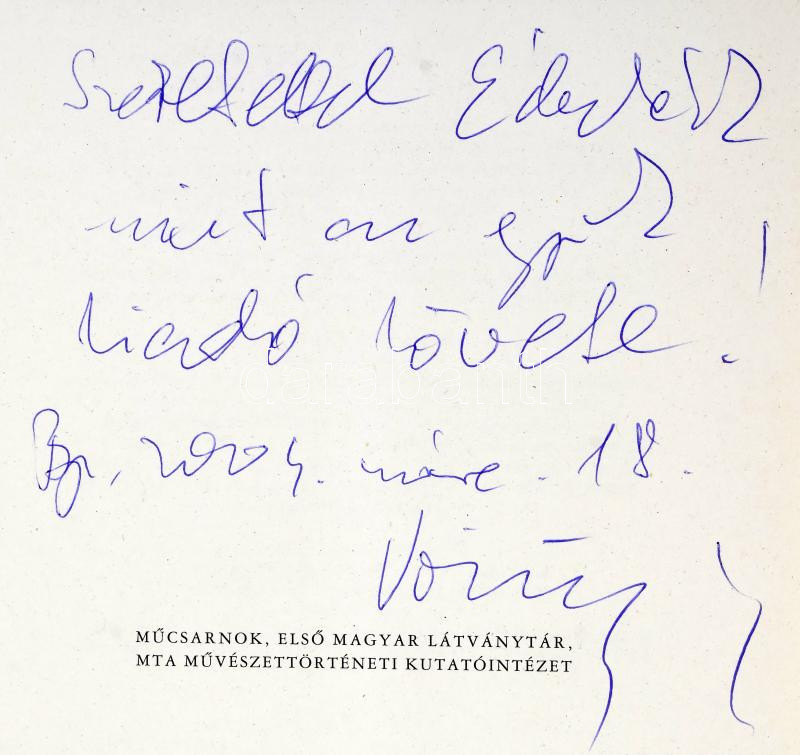 Szeretettel
mint az
kiadó követe!
Bp, 2004. márc. 18.
MŰCSARNOK, ELSŐ MAGYAR LÁTVÁNYTÁR,
MTA MŰVÉSZETTÖRTÉNETI KUTATÓINTÉZET